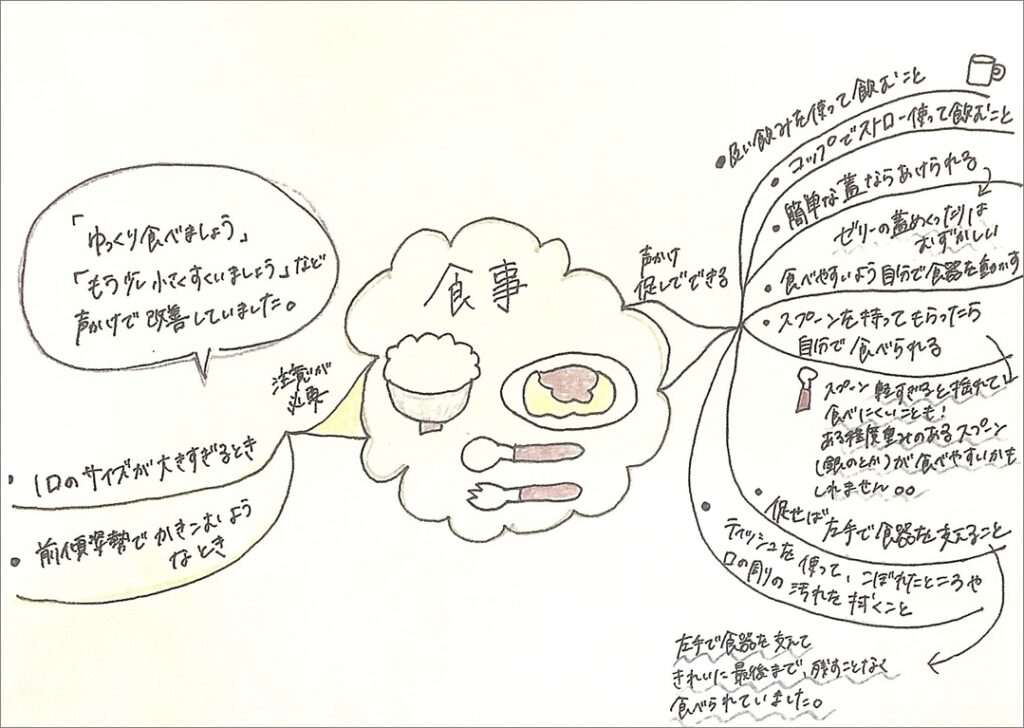 食事
声かけ
促しでできる
●良い飲みを使って飲むこと
・コップでストロー使って飲むこと
・簡単な蓋ならあけられる
ゼリーの蓋めくったりは
むずかしい
・食べやすいよう自分で食器を動かす
・スプーンを持ってもらったら
自分で食べられる
スプーン軽すぎると揺れて
食べにくいことも!
ある程度重みのあるスプーン
(銀のとか)が食べやすいかも
しれません。。
・促せば
左手で食器を支えること
・ティッシュを使って、こぼれたところや
口の周の汚れを拭くこと
左手で食器を支えて
きれいに最後まで、残すことなく
食べられていました。
注意が
必要
・1口のサイズが大きすぎるとき
・前傾姿勢でかきこむよう
なとき
「ゆっくり食べましょう」
「もう少し小さくすくいましょう」など
声かけで改善していました。